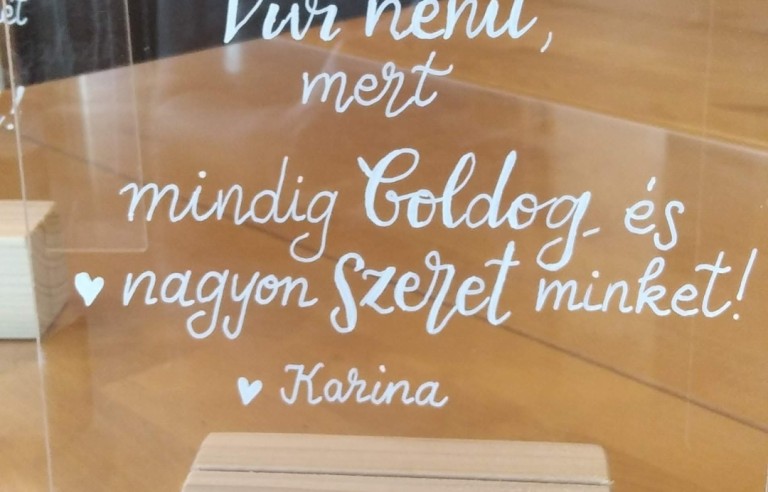 mert
mindig boldog és
♥ nagyon szeret minket!
♥ Karina